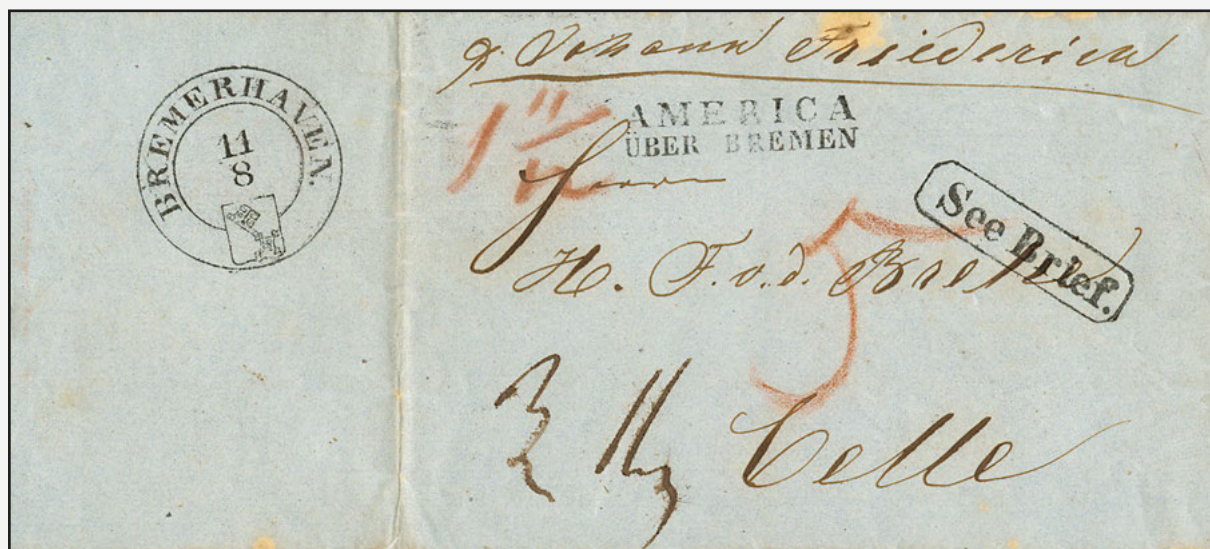 BREMERHAVEN.
11
8
p. Johann Friederich
AMERICA
ÜBER BREMEN
Herrn
See Brief.
H. F. v. d.
5
Celle